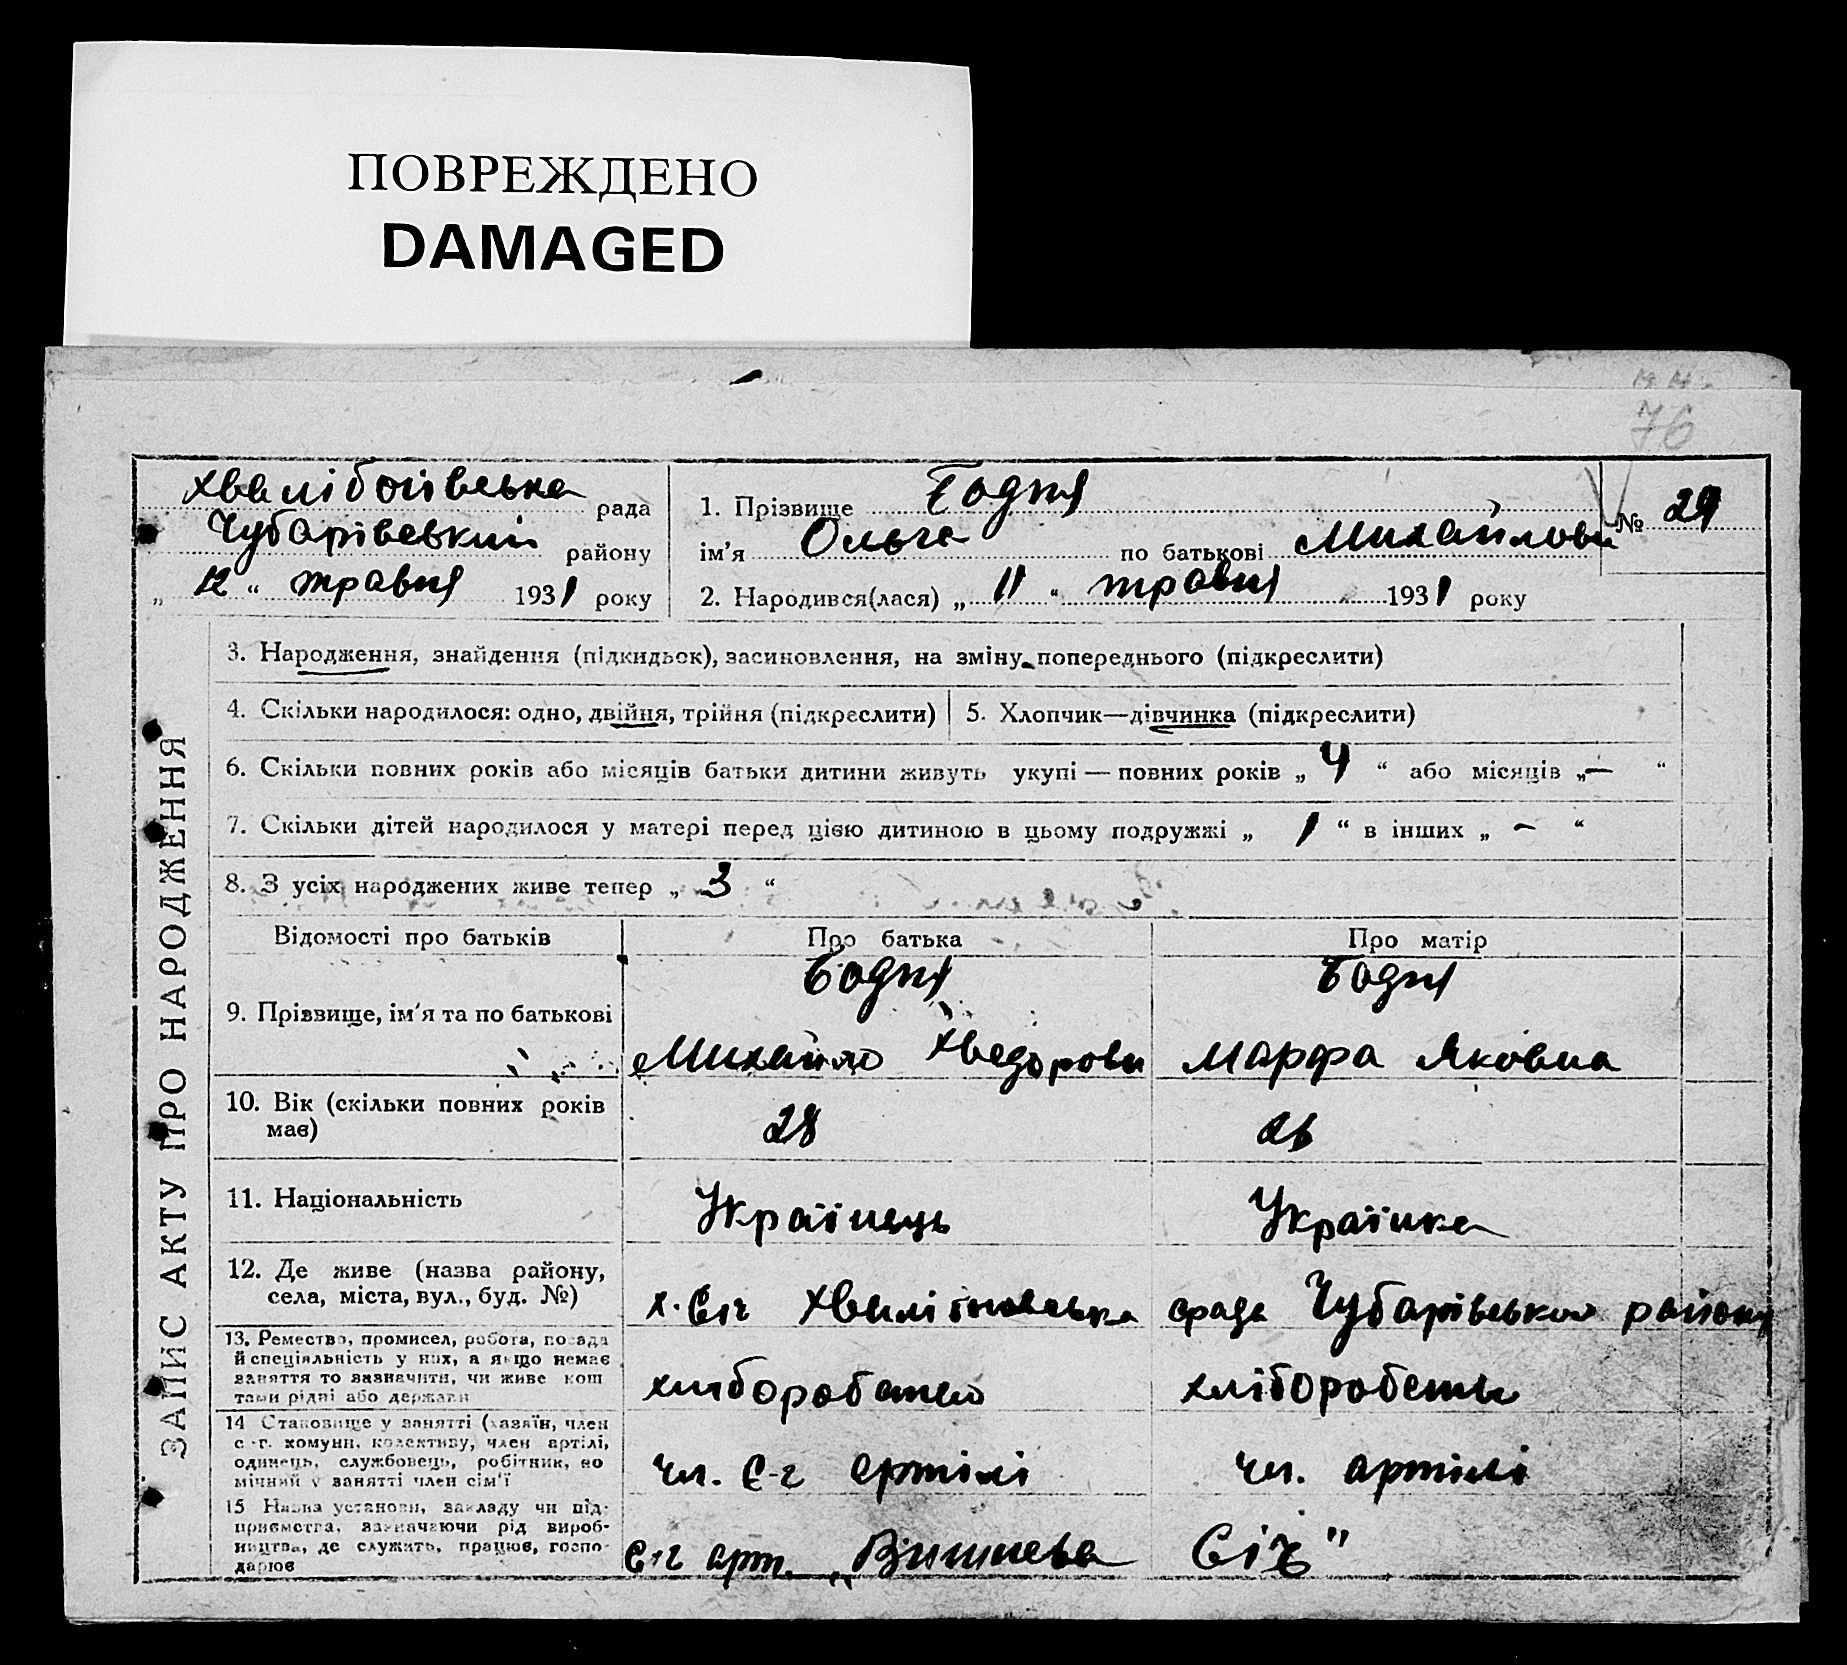 ПОВРЕЖДЕНО
DAMAGED
76
Хвалібоівська рада
Чубарівський району
„ 12 “ травня 1931 року
1. Прізвище Бодня
ім’я Ольга по батькові Михайловн
2. Народився(лася) „ 11 “ травня 1931 року
№ 29
ЗАПИС АКТУ ПРО НАРОДЖЕННЯ
3. Народження, знайдення (підкидьок), засиновлення, на зміну попереднього (підкреслити)
4. Скільки народилося: одно, двійня, трійня (підкреслити)
5. Хлопчик—дівчинка (підкреслити)
6. Скільки повних років або місяців батьки дитини живуть укупі — повних років „ 4 “ або місяців „ — “
7. Скільки дітей народилося у матері перед цією дитиною в цьому подружжі „ 1 “ в інших „ — “
8. З усіх народжених живе тепер „ 3 “
Відомості про батьків
Про батька
Про матір
9. Прізвище, ім’я та по батькові
Бодня
Михайло Хведорови
Бодня
Марфа Яковна
10. Вік (скільки повних років має)
28
26
11. Національність
Українець
Українка
12. Де живе (назва району, села, міста, вул., буд. №)
х. Січ рада Чубарівської району
13. Ремество, промисел, робота, посада
й спеціяльність у них, а якщо немає
заняття то зазначити, чи живе кош
тами рідні або держави
хліборобство
хліборобство
14 Становище у занятті (хазяїн, член
с.-г. комуни, колективу, член артілі,
одинець, службовець, робітник, по
мічний у занятті член сім’ї
чл. с-г артілі
чл. артілі
15 Назва установи, закладу чи під-
приємства, зазначаючи рід вироб-
ництва, де служить, працює, госпо-
дарює
с-г арт. „Вишнева Січ"